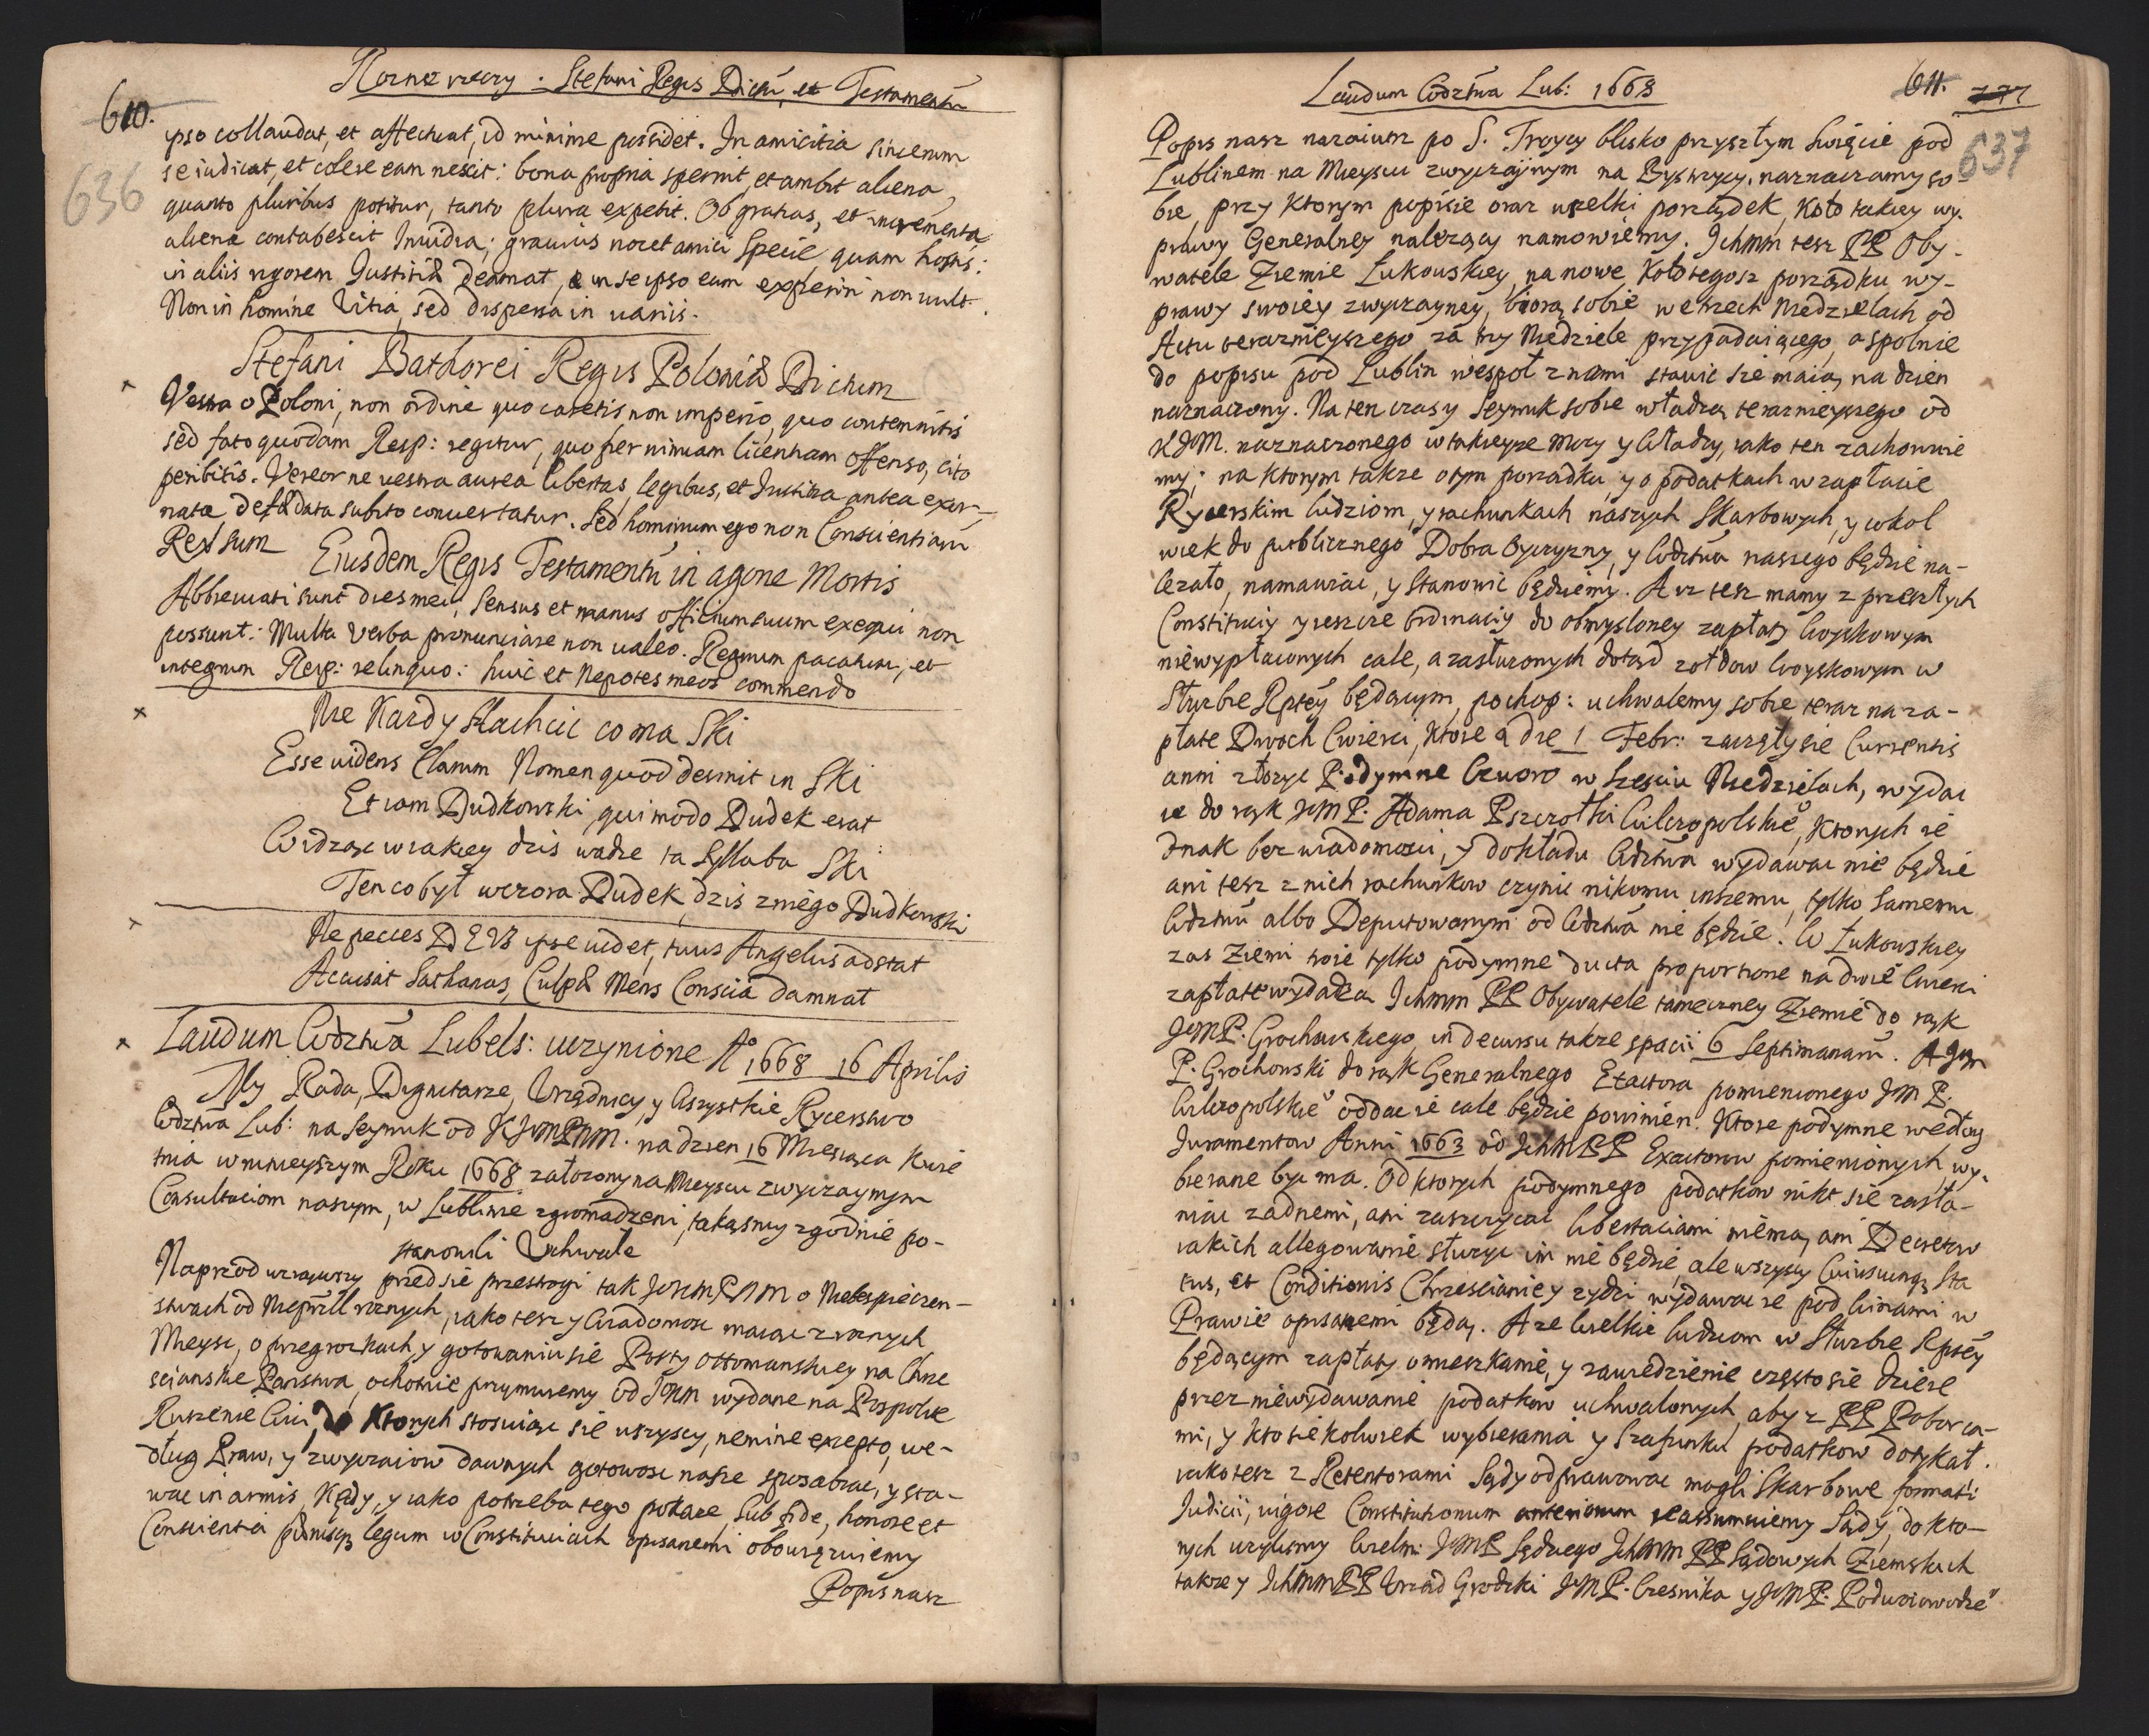 610.
636
Rozne rzeczy. Stefani Regis Dictũ, et Testamentũ
ipso collaudat, et affectuat, id minime possidet. In amicitia sincerum
se iudicat, et colere eam nescit: bona propria spernit, et ambit aliena
quanto pluribus potitur, tanto plura expetit. Ob gratias, et incrementa
aliena contabescit Inuidia; grauius nocet amici specie, quam hostis:
in aliis rigorem Justitiæ deamat, & in se ipso eam experiri non uult.
Non in homine Vitia, sed dispersa in uariis.
Stefani Bathorei Regis Poloniæ Dictum
Vestra o Poloni, non ordine quo caretis non imperio, quo contemnitis
sed fato quodam Resp: regitur, quo per nimiam licentiam offenso, cito
peribitis. Vereor ne uestra aurea libertas, legibus, et Justitia antea exor-
nata defædata subito conuertatur. Sed hominum ego non Conscientiarũ
Rex sum
Eiusdem Regis Testamentũ in agone Mortis
Abbreuiati sunt dies mei, Sensus et manus officium suum exequi non
possunt: Multa verba pronunciare non ualeo. Regnum pacatum, et
integrum Resp: relinquo: huic et Nepotes meos commendo
Nie Kazdy szlachcic co ma Ski
Esse uidens Clarum Nomen quod desinit in Ski
Et iam Dudkowski, qui modo Dudek erat
Widząc w iakiey dzis wadze ta Syllaba Ski
Ten co był wczora Dudek, dzis z niego Dudkowski
Ne pecces DEVS ipse uidet, tuus Angelus adstat
Accusat Sathanas, Culpæ Mens Conscia damnat
Laudum Wdztwa Lubels: uczynione Aº 1668 16 Aprilis
My Rada, Dignitarze, Vrzędnicy, y Wszystkie Rycerstwo
Wdztwa Lub: na Seymik od KJmPNM. na dzien 16 Miesiąca Kwie
tnia w ninieyszym Roku 1668 załozony na Mieyscu zwyczaynym
Consultaciom naszym, w Lublinie zgromadzeni, takąsmy zgodnie po-
stanowili Vchwałe
Naprzod wziąwszy przed sie przestrogi tak JoKmPNM o Niebespieczen-
stwach od Nieprzÿł roznych, iako tesz y Wiadomosc maiąc z roznych
Mieysc, o pregrozkach, y gotowaniu sie Porty Ottomanskiey na Chrze
scianskie Panstwa, ochotnie przyimuiemy od JoKm wydane na Pospolite
Ruszenie Wici, do Ktorych stosuiąc sie wszyscy, nemine excepto, we-
dług Praw, y zwyczaiow dawnych gotowosc nasze sposabiac, y sta-
wac in armis, Kędy, y iako potrzeba tego pokaze, Sub fide, honore et
Conscientia pænisq3 legum w Constituciach opisanemi obowiązuiemy
Popis nasz
Laudum Wdztwa Lub: 1668
611.
637
Popis nasz nazaiutrz po S. Troycy blisko przyszłym Święcie pod
Lublinem na Mieyscu zwyczajnym na Bystrzycy, naznaczamy so-
bie, przy Ktorym popisie oraz wszelki porządek, Koło takiey wy-
prawy Generalney nalezący namowiemy. Jchmm tesz PP Oby-
watele Ziemie Łukowskiey, na nowe, Koło tegosz porządku wy-
prawy swoiey zwyczayney, biorą sobie we trzech Niedzielach od
Actu terazniey­szego za try Niedziele przypadaiącego, a spolnie
do popisu pod Lublin wespoł z nami stawic sie maią, na dzien
naznaczony. Na ten czas y Seymik sobie władzą teraznieyszego od
KJM. naznaczonego w takieyze Mocy y Władzy, iako ten zachowuie
my; na Ktorym takze o tym porządku, y o podatkach w zapłacie
Rycerskim ludziom, y rachunkach naszych Skarbowych, y cokol
wiek do publicznego Dobra Oyczyzny, y Wdztwa naszego będzie na-
lezało, namawiac, y stanowic będziemy. A iz tesz mamy z przeszłych
Constituciy y ieszcze Ordinaciy do obmysloney zapłaty Woyskowym
niewypłaconych cale, a zasłuzonych dotąd zołdow Woyskowym w
Słuzbie Rptey będącym, pochop: uchwalemy sobie teraz na za-
płate Dwoch Cwierci, Ktore a die 1 Febr: zaczęły sie Currentis
anni złozyc Podymne Czworo w Szesciu Niedzielach, wydac
ie do rąk JmP. Adama Pszczołki Wielgopolskieº, Ktorych ie
dnak bez wiadomosci, y dokładu Wdztwa wydawac nie będzie
ani tesz z nich rachunkow czynic nikomu inszemu, tylko samemu
Wdztwu albo Deputowanym od Wdztwa nie będzie. W Łukowskiey
zas Ziemi troie tylko podymne ducta proportione na dwie Cwierci
zapłate wydadzą Jchmm PP Obywatele tameczney Ziemie do rąk
JmP. Grochowskiego, in decursu takze spacii 6 Septimanarũ. A Jm
P. Grochowski do rąk Generalnego Exactora pomienionego JmP.
Wielgopolskieº oddac ie cale będzie powinien. Ktore podymne według
Juramentow Anni 1663 od JchMPP Exactorow pomienionych, wy-
bierane byc ma. Od ktorych podymnego podatkow nikt sie zasła-
niac zadnemi, ani zaszczycac libertaciami niema, ani Decretow
iakich allegowanie słuzyc im nie będzie, ale wszyscy Cuiuscunq3 Sta
tus, et Conditionis Chrzescianie y zydzi wydawac ie pod Winami w
Prawie opisanemi będą. A ze wielkie ludziom w Słuzbie Rptey
będącym zapłaty omieszkanie, y zawiedzienie częstosie dzieie
przez niewydawanie podatkow uchwalonych, aby z PP Poborca-
mi, y ktosiekolwiek wybierania y Szafunku podatkow dotykał.
iako tesz z Retentorami Sądy odprawowac mogli Skarbowe formati
Judicii, uigore Constitutionum anteriorum reassumuiemy Sądy, do kto-
rych uzylismy Wielm: JmP Sędziego JchMm PP Sądowych Ziemskich
takze y JchmmPP Vrząd Grodzki JmP. Czesnika y JmP: Podwoiewodzeº